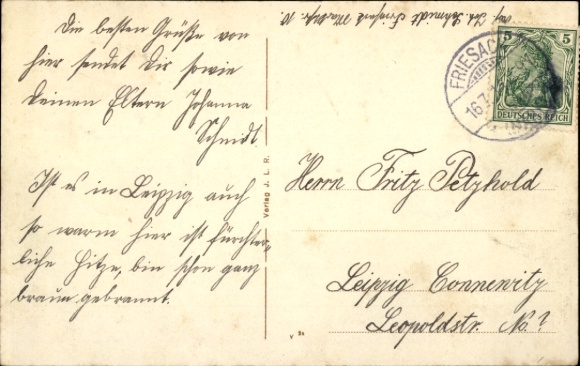 Die besten Grüße von
hier sendet Dir sowie
deinen Eltern Johanna
Schmidt.
Ist es in Leipzig auch
so warm hier ist fürchter-
liche Hitze, bin schon ganz
braun gebrannt.
Verlag J. L. R.
Abs. Joh. Schmidt Friesack
FRIESACK
16.7
5 5
DEUTSCHES REICH
Herrn Fritz Petzhold
Leipzig Connewitz
Leopoldstr. No. ?